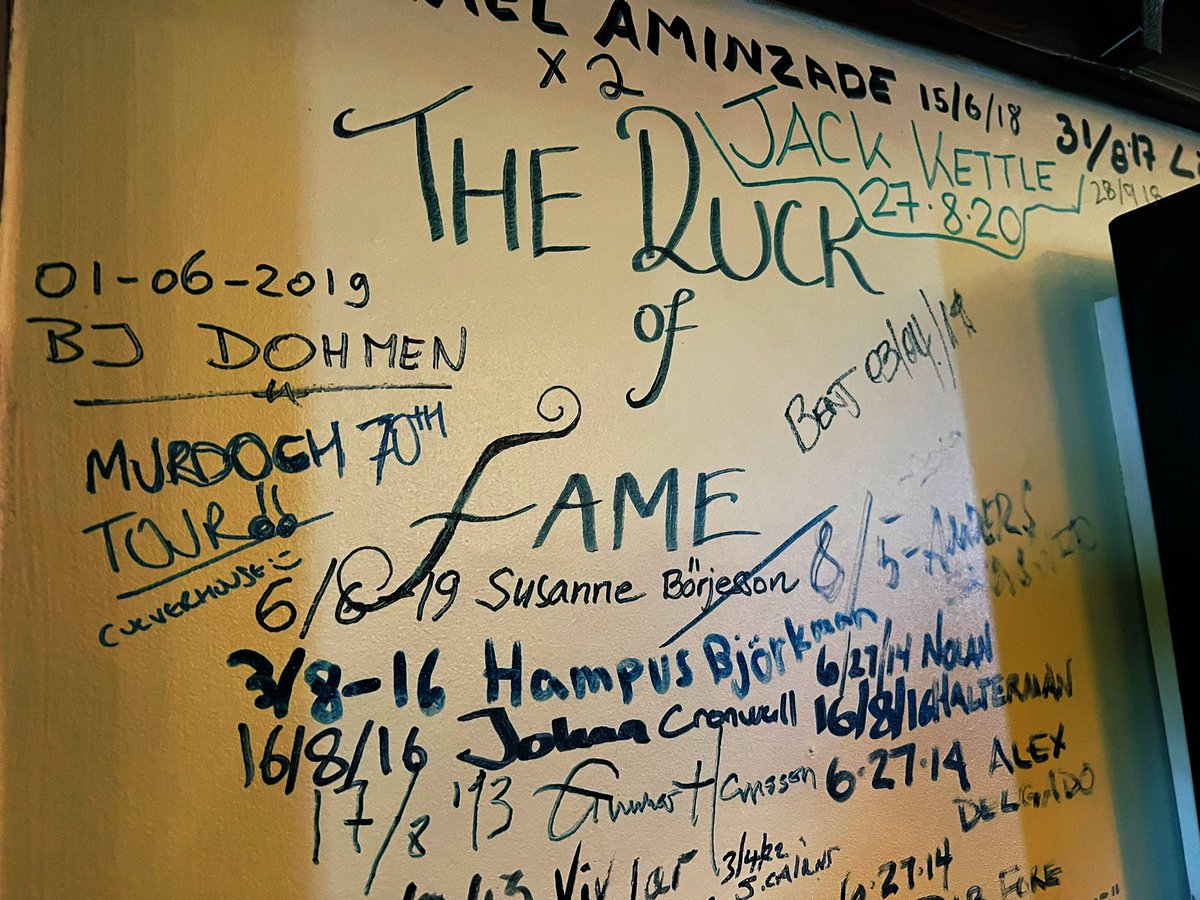 AMINZADE 15/6/18
x 2
31/8.17
JACK KETTLE
27.8.20
28/9 18
THE DUCK
of
FAME
01-06-2019
BJ DOHMEN
MURDOCH 70TH
TOUR!!
BENJ 03/04/19
6/8 19 Susanne Börjesson
8/5-ANDERS
3/8-16 Hampus Björkman
6/27/14 NOLAN
HALTERMAN
16/8/16 Johan Cronwall 16/8/16
17/8 '13
6.27.14 ALEX
DELGADO
3/4/22
J. CAIRNS
6.27.14